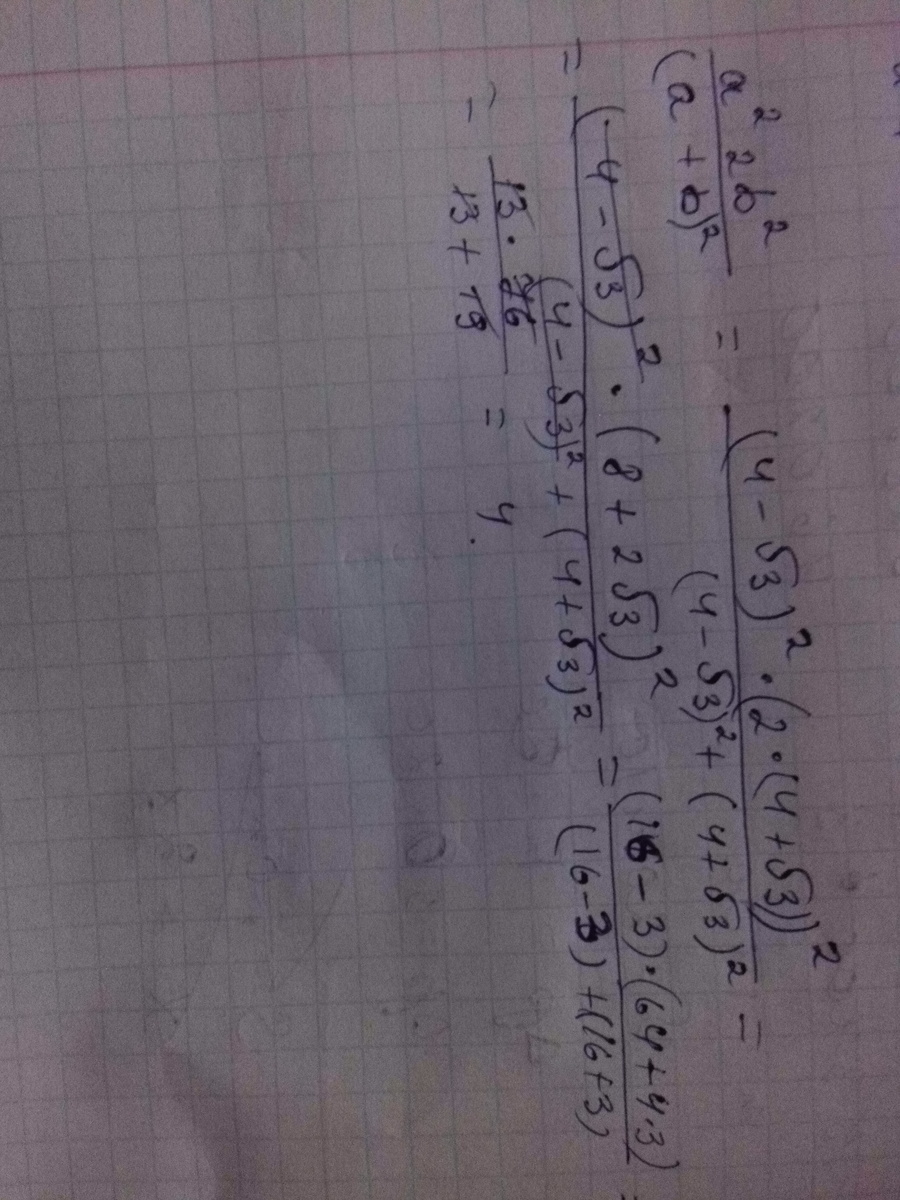 a² 2b² / (a + b)² = (4 - √3)² · (2 · (4 + √3))² / (4 - √3)² + (4 + √3)² =
= (4 - √3)² · (8 + 2√3)² / (4 - √3)² + (4 + √3)² = (16 - 3) · (64 + 4·3) / (16 - 3) + (16 + 3) =
= 13 · 76 / 13 + 19 = 4.